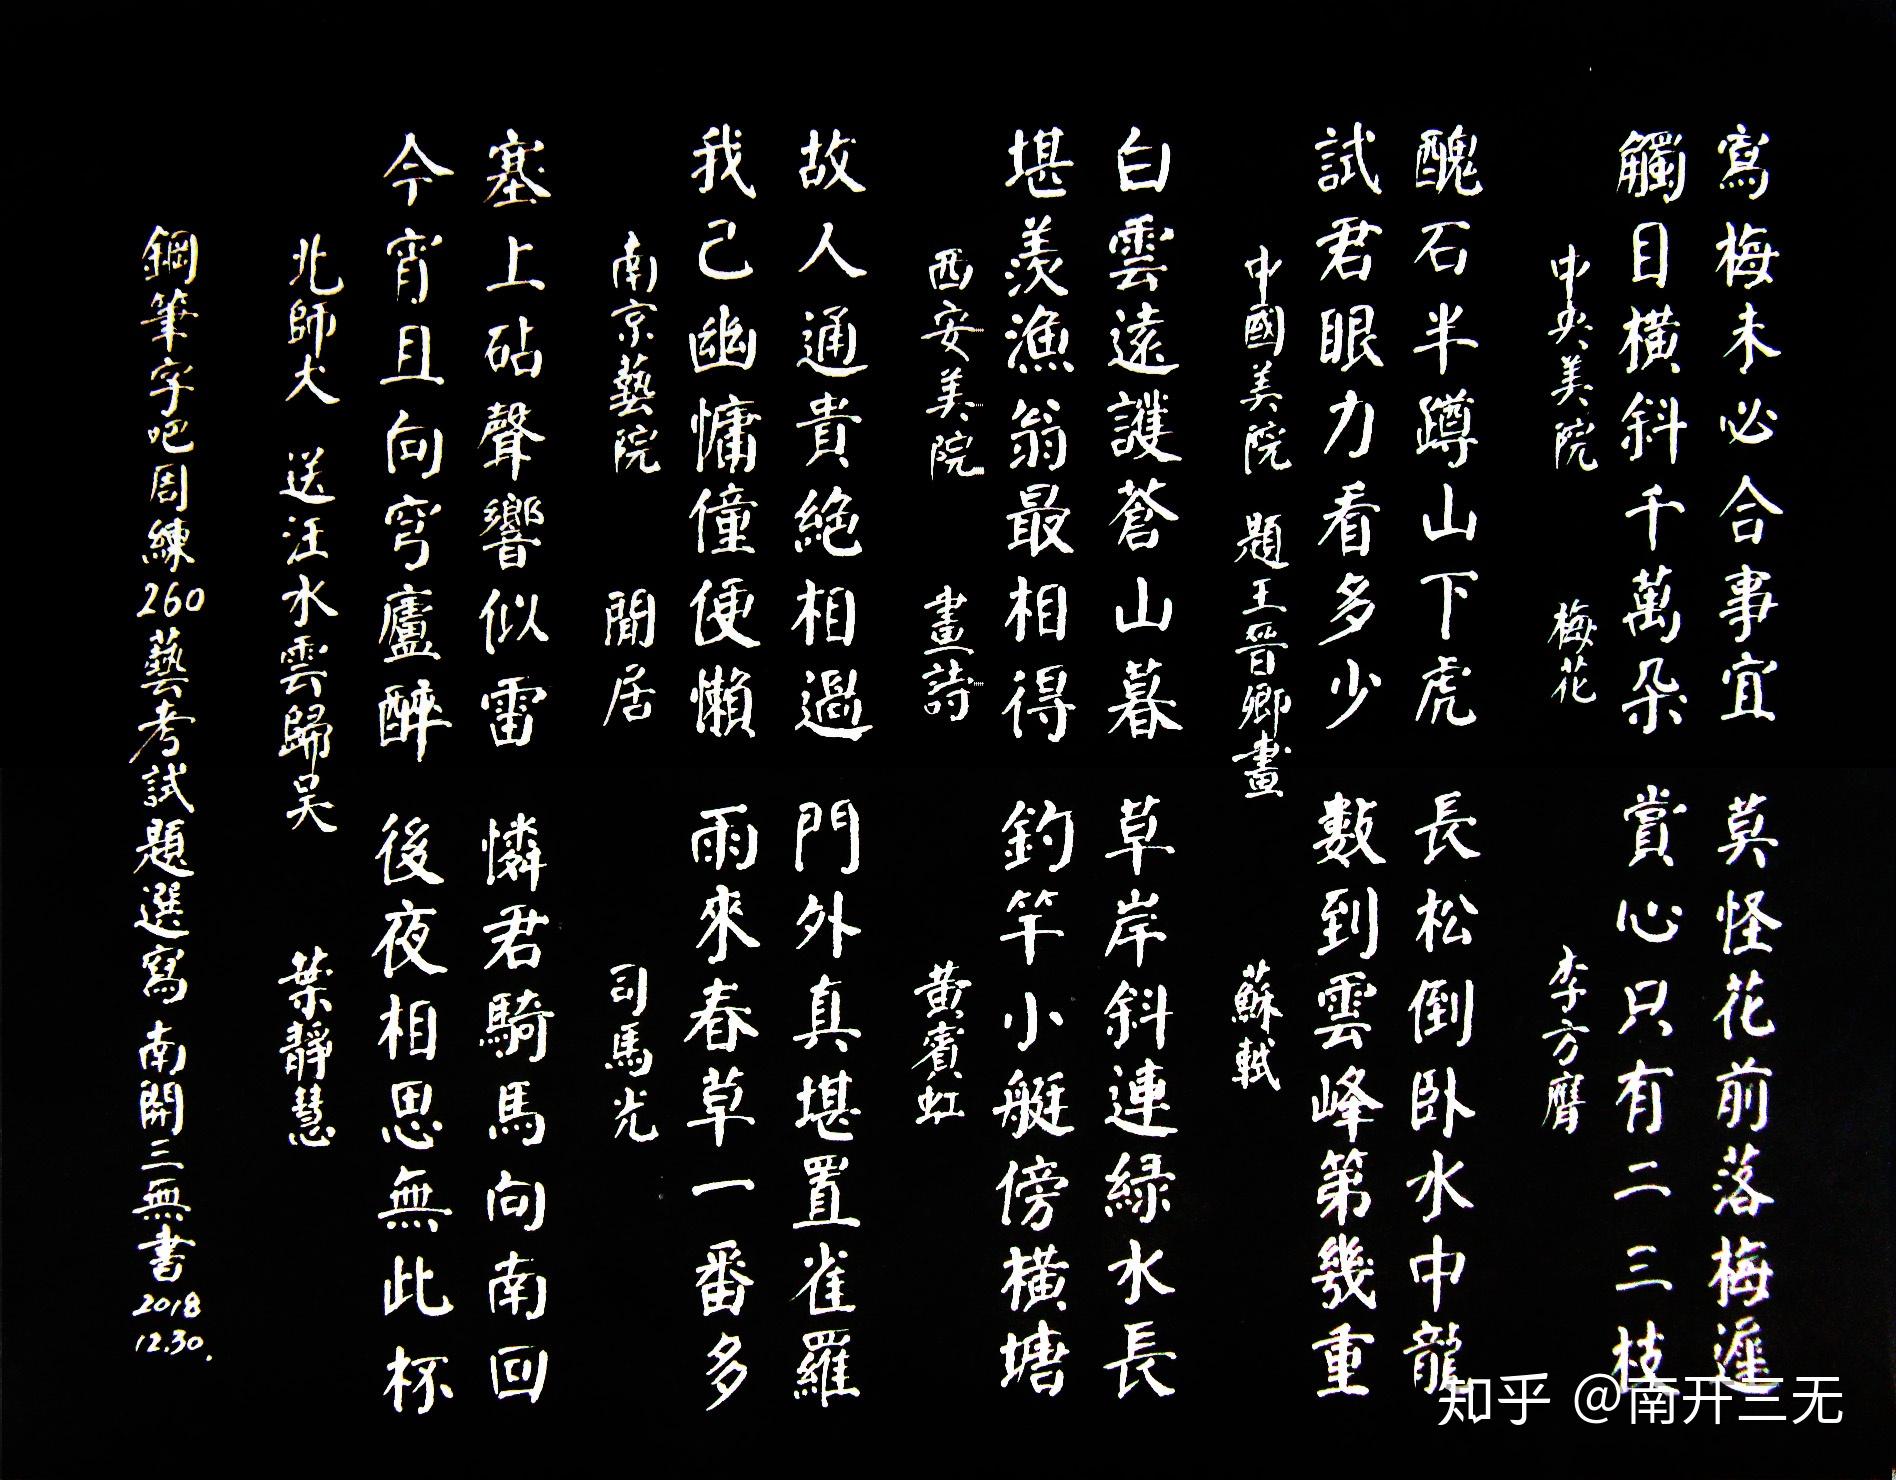 寫梅未必合事宜 莫怪花前落梅遲
觸目橫斜千萬朵 賞心只有二三枝
中央美院 梅花 李方膺
醜石半蹲山下虎 長松倒卧水中龍
試君眼力看多少 數到雲峰第幾重
中國美院 題王晉卿畫 蘇軾
白雲遠護蒼山暮 草岸斜連綠水長
堪羡漁翁最相得 釣竿小艇傍橫塘
西安美院 畫詩 黃賓虹
故人通貴絕相過 門外真堪置雀羅
我已幽慵僮便懶 雨來春草一番多
南京藝院 閒居 司馬光
塞上砧聲響似雷 憐君騎馬向南回
今宵且向穹廬醉 後夜相思無此杯
北師大 送汪水雲歸吴 葉靜慧
鋼筆字吧周練260藝考試題選寫 南開三無書 2018 12.30.
知乎 @南开三无